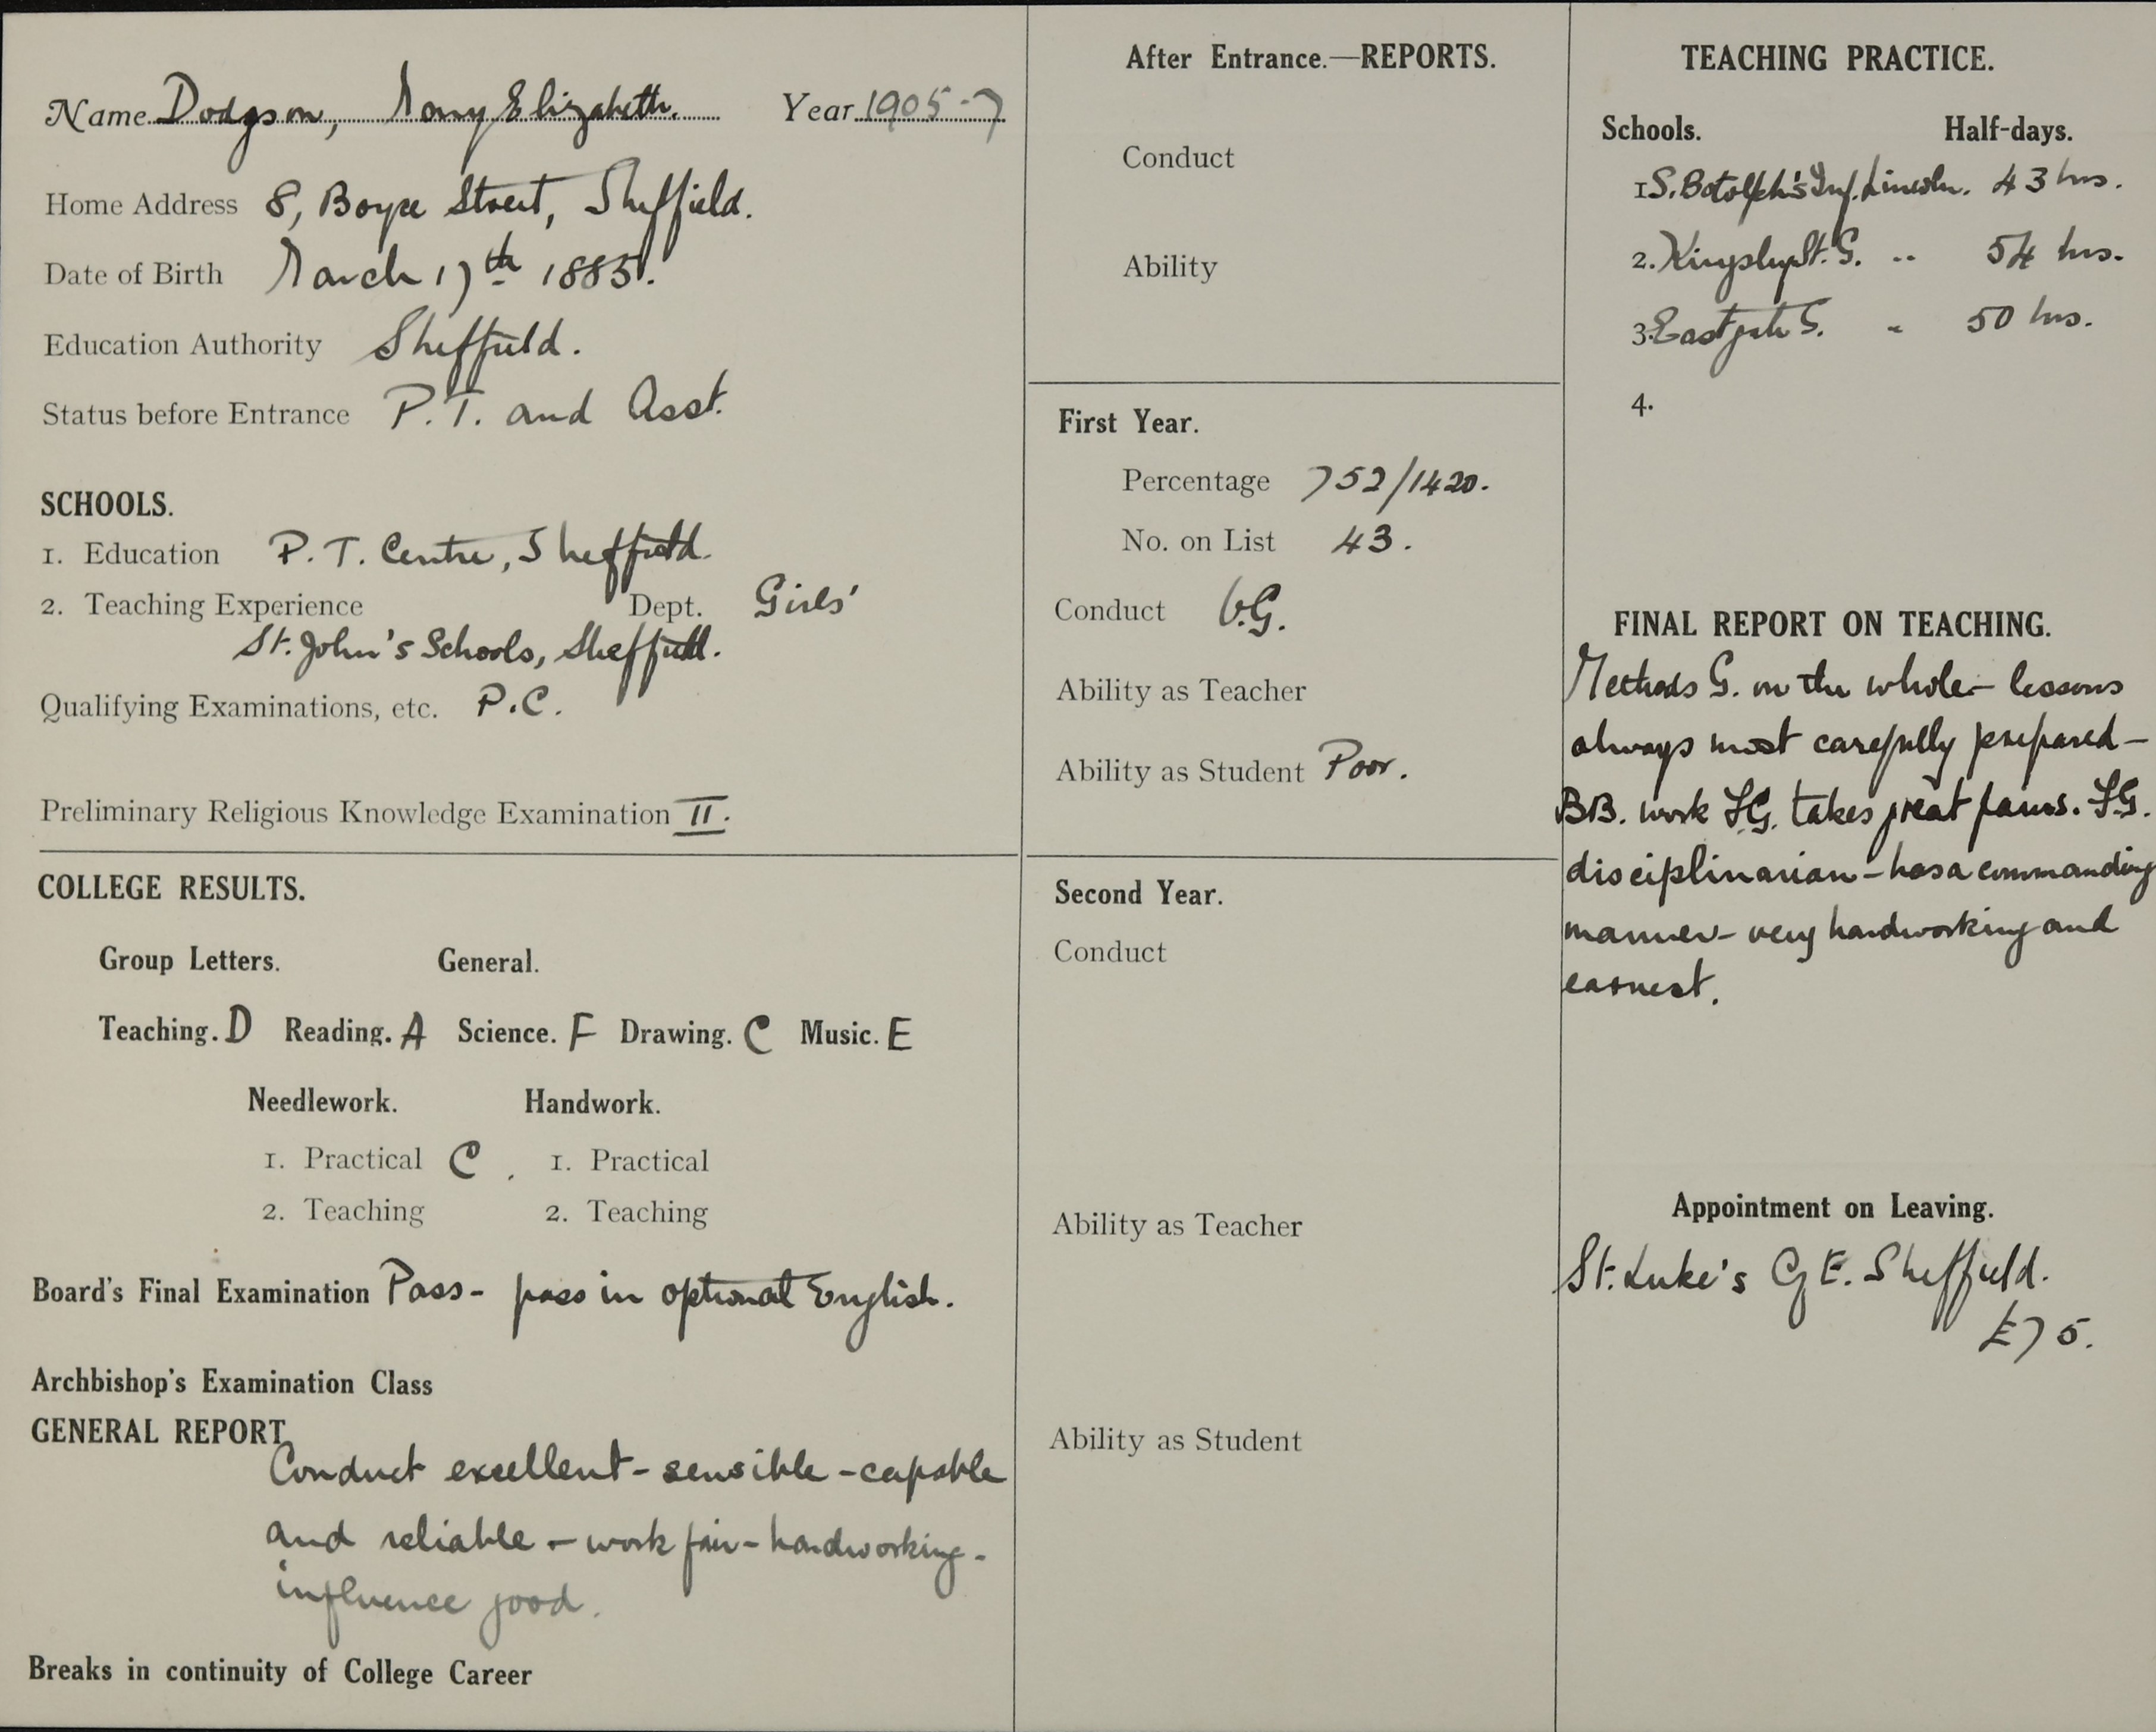 Name Dodgson, Mary Elizabeth. Year 1905-7
Home Address 8, Boyce Street, Sheffield.
Date of Birth March 17th 1885.
Education Authority Sheffield.
Status before Entrance P.T. and Asst.
SCHOOLS.
1. Education P. T. Centre, Sheffield.
2. Teaching Experience Dept. Girls'
St. John's Schools, Sheffield.
Qualifying Examinations, etc. P.C.
Preliminary Religious Knowledge Examination II.
COLLEGE RESULTS.
Group Letters. General.
Teaching. D Reading. A Science. F Drawing. C Music. E
Needlework. Handwork.
1. Practical C. 1. Practical
2. Teaching 2. Teaching
Board's Final Examination Pass - pass in optional English.
Archbishop's Examination Class
GENERAL REPORT
Conduct excellent - sensible - capable
and reliable - work fair - hardworking -
influence good.
Breaks in continuity of College Career
After Entrance.—REPORTS.
Conduct
Ability
First Year.
Percentage 752/1420.
No. on List 43.
Conduct V.G.
Ability as Teacher
Ability as Student Poor.
Second Year.
Conduct
Ability as Teacher
Ability as Student
TEACHING PRACTICE.
Schools. Half-days.
1 S. Botolph's Inf. Lincoln. 43 hrs.
2. Kingsley St. G. " 54 hrs.
3. Eastgate G. " 50 hrs.
4.
FINAL REPORT ON TEACHING.
Methods G. on the whole - lessons
always most carefully prepared -
BB. work F.G. takes great pains. F.G.
disciplinarian - has a commanding
manner - very hardworking and
earnest.
Appointment on Leaving.
St. Luke's C of E. Sheffield.
£75.